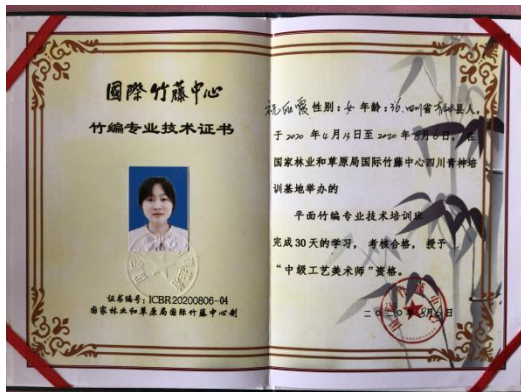 國際竹藤中心
竹编专业技术证书
证书编号：ICBR20200806-04
国家林业和草原局国际竹藤中心制
性别：女 年龄：36. 四川省 县人，
于2020年4月13日至2020年8月6日，在
国家林业和草原局国际竹藤中心四川青神培
训基地举办的
平面竹编专业技术培训班
完成30天的学习，考核合格，授予
“中级工艺美术师”资格。
二〇二〇年8月6日